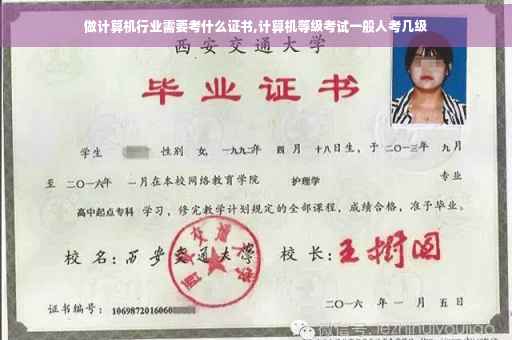 做计算机行业需要考什么证书,计算机等级考试一般人考几级
西安交通大学
毕业证书
学生 性别 女,一九九二年 四月 十八日生,于二〇一三年 九月
至 二〇一六年 一月在本校网络教育学院 护理学 专业
高中起点专科 学习,修完教学计划规定的全部课程,成绩合格,准予毕业。
校名:西安交通大学 校长:王树国
西安交通大学
证书编号:1069872016060
二〇一六年一月五日
微信号: jezhihuiyoujiao